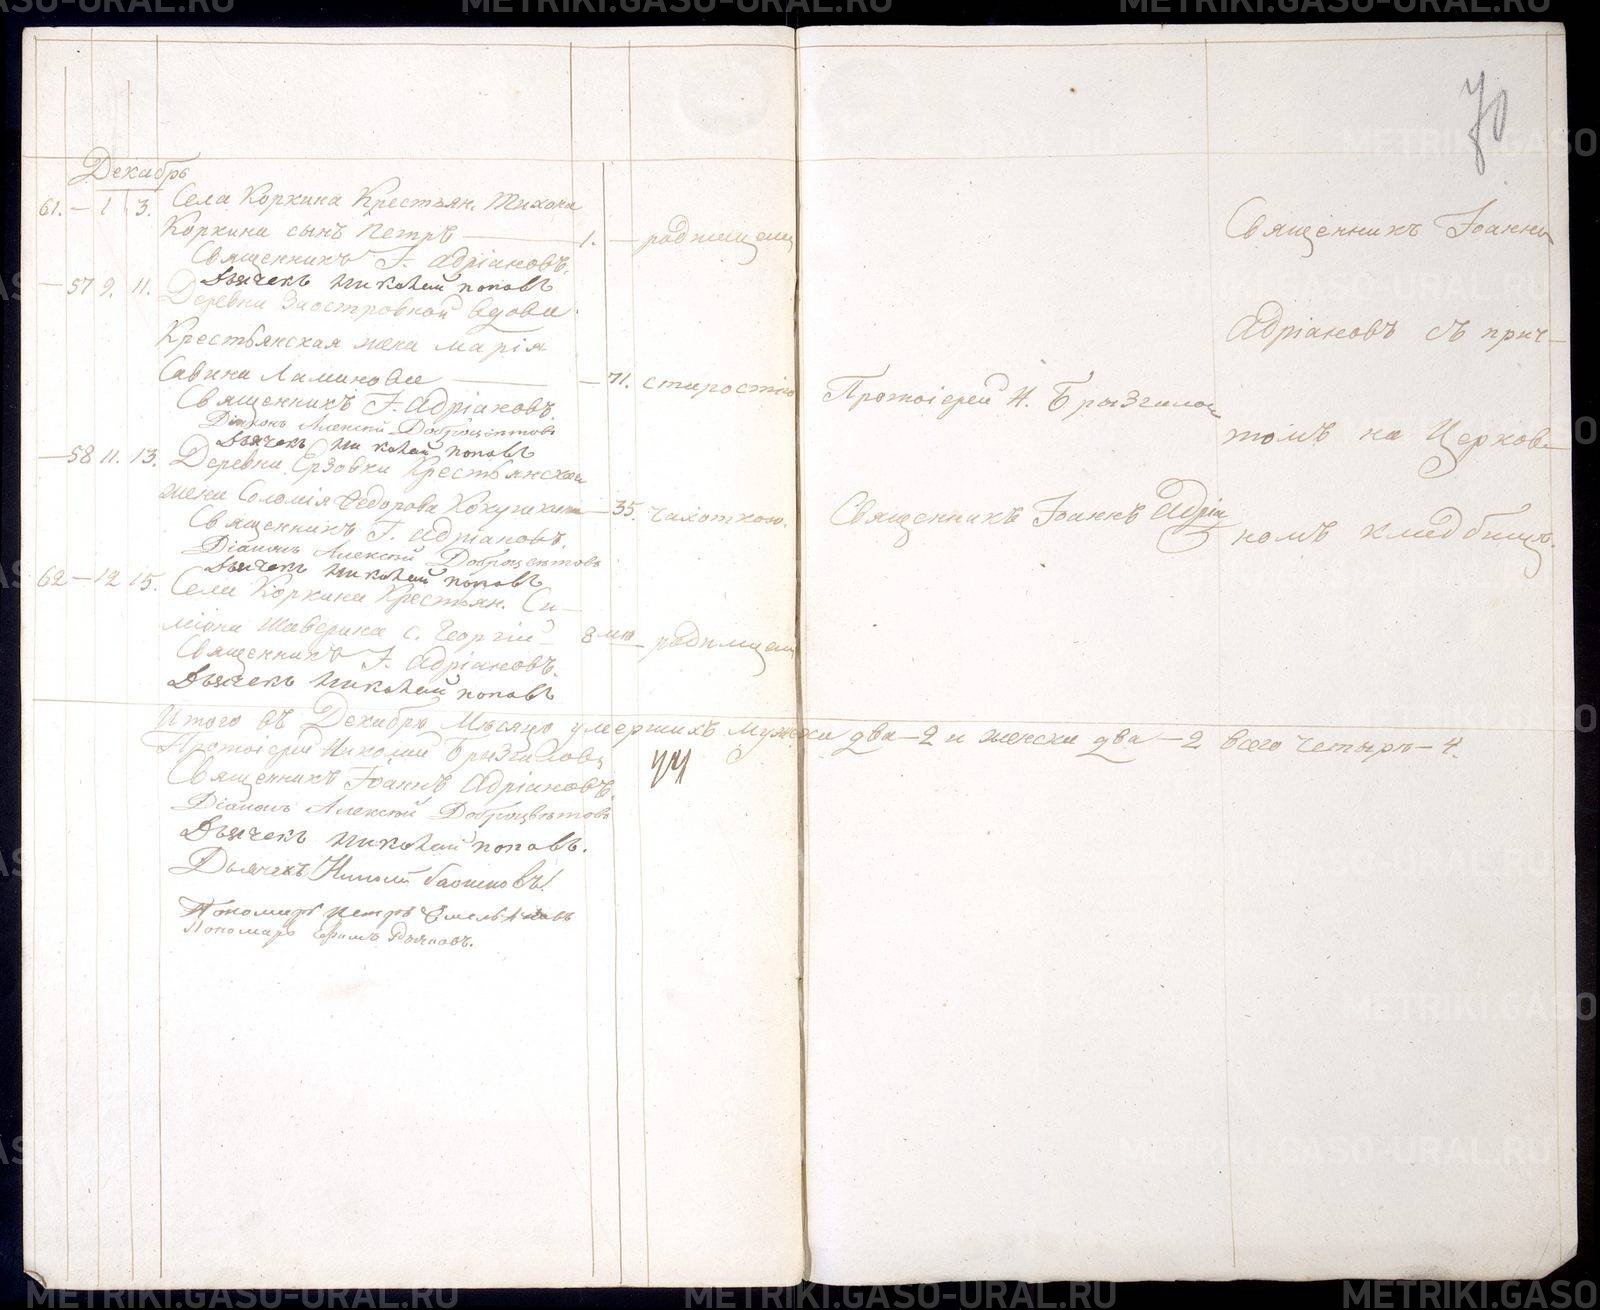 70
Декабрь
61. — 1 3. Села Коркина Крестьян. Тихона
Коркина сынъ Петръ — 1. — родимцемъ
Священникъ І. Адріановъ.
Дьячекъ Николай Поповъ
— 57 9. 11. Деревни Заостровной вдова
Крестьянская жена Марія
Савина Ламинова — 71. старостію
Священникъ І. Адріановъ.
Діаконъ Алексій Доброцвѣтовъ
Дьячекъ Николай Поповъ
— 58 11. 13. Деревни Ерзовки Крестьянская
жена Соломія Ѳедорова — 35. чахоткою.
Священникъ І. Адріановъ
Діаконъ Алексій Доброцвѣтовъ
Дьячекъ Николай Поповъ
62 — 12 15. Села Коркина Крестьян. Си-
міона Шаверина с. Георгій 8 мѣ — родимцемъ
Священникъ І. Адріановъ.
Дьячекъ Николай Поповъ
Протоіерей Н. Брызгалов
Священникъ Іоаннъ Адріа
Священникъ Іоаннъ
Адріановъ съ прич-
томъ на Церков-
номъ кладбищѣ.
Итого въ Декабрѣ Мѣсяцѣ умершихъ мужеска два — 2 и женска два — 2 всего четыре — 4.
Протоіерей Николай Брызгаловъ
Священникъ Іоаннъ Адріановъ.
Діаконъ Алексій Доброцвѣтовъ
Дьячекъ Николай Поповъ.
Дьячекъ
Пономарь Петръ Емельяновъ
Пономарь Ефимъ
METRIKI.GASO-URAL.RU